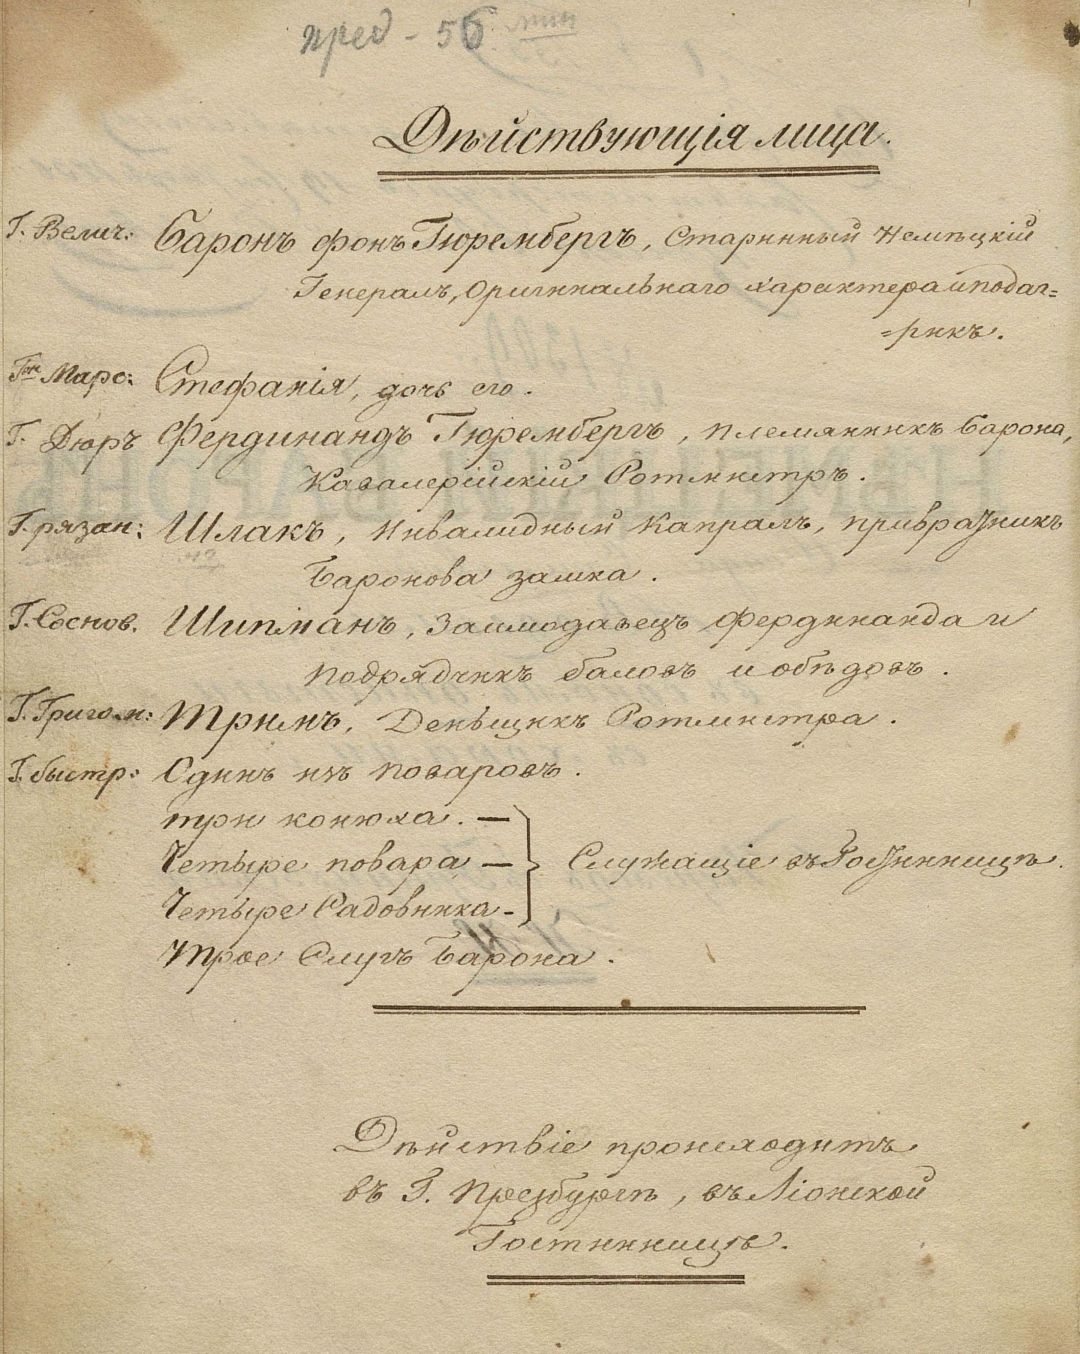 пред - 56
Дѣйствующія лица.
Г. Велич: Баронъ фонъ Тюрембергъ, Старинный Немѣцкій
Генералъ, Оригинальнаго характера и подаг=
=рикъ.
Гжа Марс: Стефанія, дочь его.
Г. Дюръ Фердинандъ Тюрембергъ, племянникъ Барона,
Кавалерійскій Ротмистръ.
Г. рязан: Шлакъ, Инвалидный Капралъ, привратникъ
Баронова замка.
Г. Соснов. Шипманъ, Заимодавецъ Фердинанда и
подрядчикъ баловъ и обѣдовъ.
Г. Григол: Тримъ, Деньщикъ Ротмистра.
Г. быстр: Одинъ изъ поваровъ.
три конюха. —
Четыре повара —
Служащіе въ Гостинницѣ.
Четыре Садовника -
Трое Слугъ Барона.
Дѣйствіе происходитъ
въ Г. Пресбургѣ, въ Ліонской
Гостинницѣ.